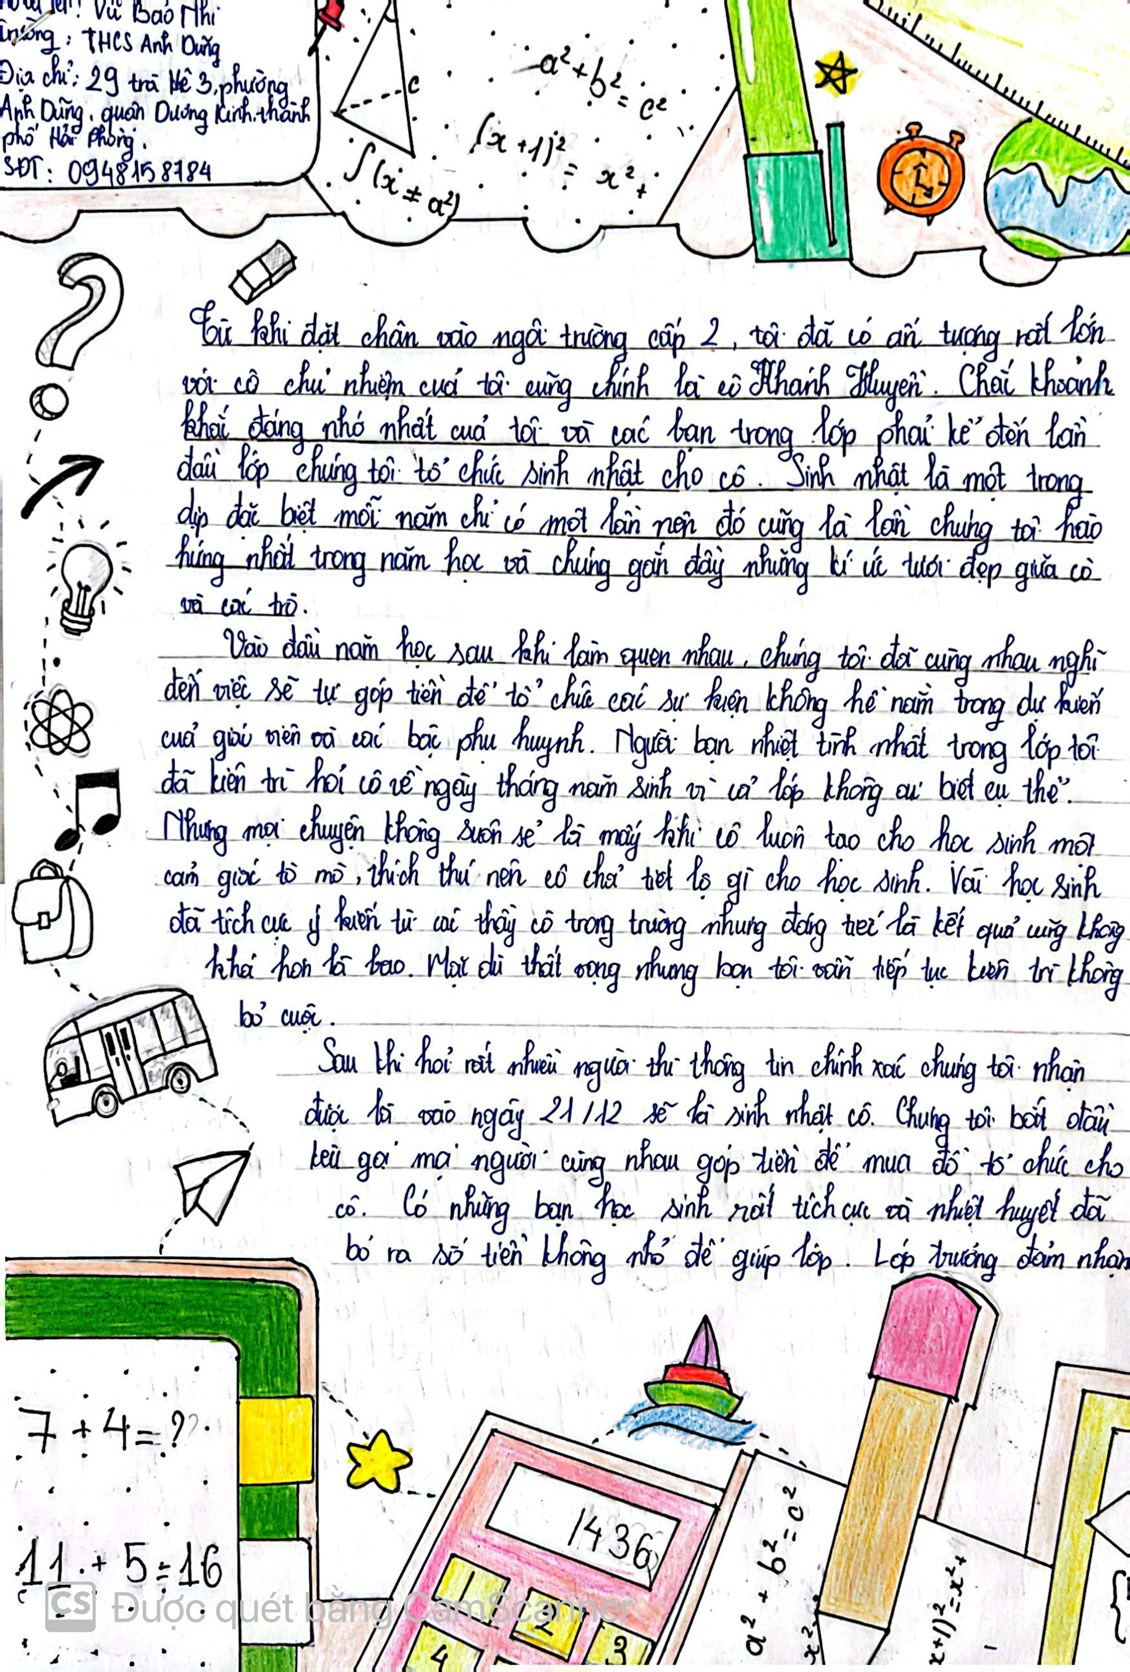 Họ và tên: Vũ Bảo Nhi
Trường: THCS Anh Dũng
Địa chỉ: 29 trà Hê 3, phường
Anh Dũng, quận Dương Kinh, thành
phố Hải Phòng.
SĐT: 0948158784
C
a²+b²=c²
(x+1)²=x²+
∫(x≠a²)
Từ khi đặt chân vào ngôi trường cấp 2, tôi đã có ấn tượng rất lớn
với cô chủ nhiệm cuả tôi cũng chính là cô Khánh Huyền. Chắc khoảnh
khắc đáng nhớ nhất cuả tôi và các bạn trong lớp phải kể đến lần
đầu lớp chúng tôi tổ chức sinh nhật cho cô. Sinh nhật là một trong
dịp đặc biệt mỗi năm chỉ có một lần nên đó cũng là lần chúng tôi hào
hứng nhất trong năm học và chứng gắn đầy những kí ức tươi đẹp giữa cô
và các trò.
Vào đầu năm học sau khi làm quen nhau, chúng tôi đã cùng nhau nghĩ
đến việc sẽ tự góp tiền để tổ chức các sự kiện không hề nằm trong dự kiến
cuả giáo viên và các bậc phụ huynh. Người bạn nhiệt tình nhất trong lớp tôi
đã kiên trì hỏi cô về ngày tháng năm sinh vì cả lớp không ai biết cụ thể.
Nhưng mọi chuyện không suôn sẻ là mấy khi cô luôn tạo cho học sinh một
cảm giác tò mò, thích thú nên cô chả tiết lộ gì cho học sinh. Vài học sinh
đã tích cực ý kiến từ các thầy cô trong trường nhưng đáng tiếc là kết quả cũng không
khá hơn là bao. Mặc dù thất vọng nhưng bạn tôi vẫn tiếp tục kiên trì không
bỏ cuộc.
Sau khi hỏi rất nhiều người thì thông tin chính xác chúng tôi nhận
được là vào ngày 21/12 sẽ là sinh nhật cô. Chúng tôi bắt đầu
kêu gọi mọi người cùng nhau góp tiền để mua đồ tổ chức cho
cô. Có những bạn học sinh rất tích cực và nhiệt huyết đã
bỏ ra số tiền không nhỏ để giúp lớp. Lớp trưởng đảm nhận
7+4=??
11+5=16
1436
1 2 3
4
a²+b²=c²
x²
x+1)²=x²+
CS Được quét bằng CamScanner